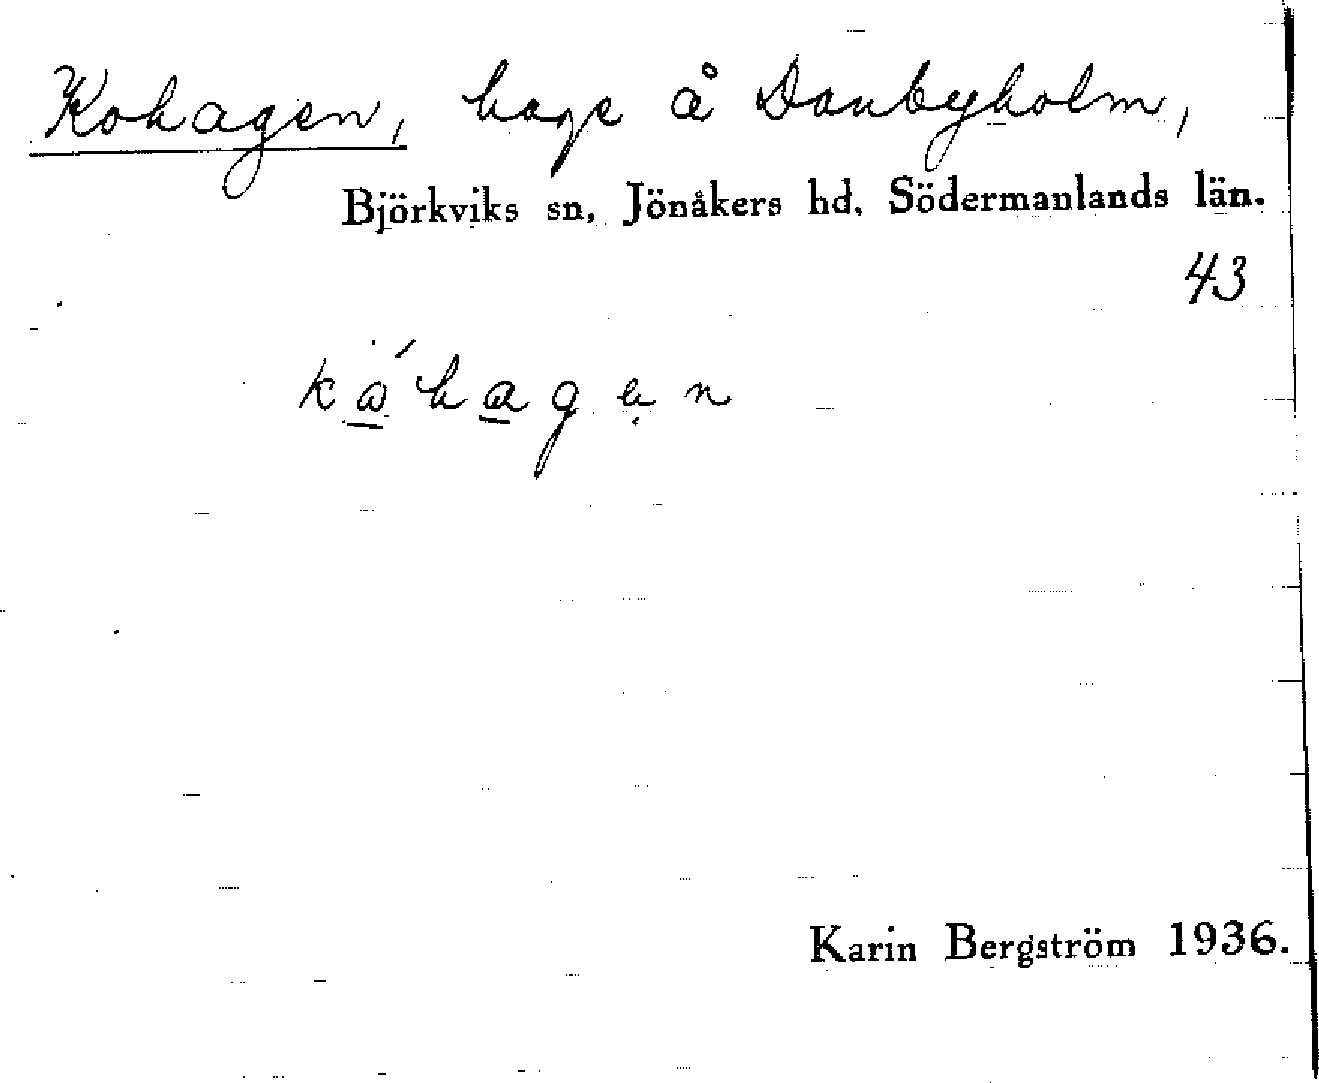 Kohagen, hage å Danbyholm,
Björkviks sn, Jönåkers hd, Södermanlands län.
43
Karin Bergström 1936.